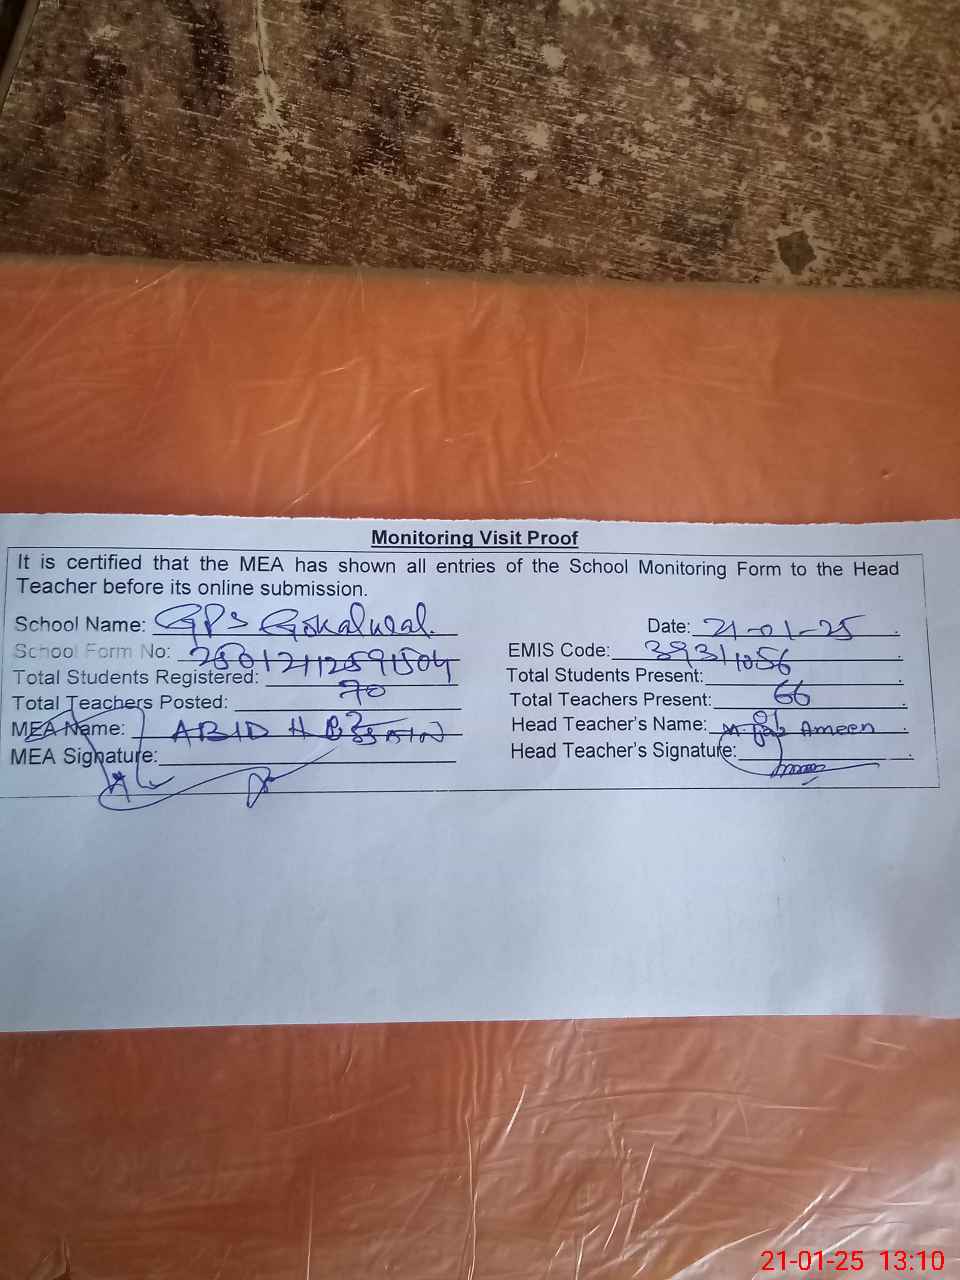 Monitoring Visit Proof
It is certified that the MEA has shown all entries of the School Monitoring Form to the Head
Teacher before its online submission.
School Name: GPS Gokalwal. Date: 21-01-25
School Form No: EMIS Code: 39311056
Total Students Registered: 70 Total Students Present: 66
Total Teachers Posted: Total Teachers Present: 01
MEA Name: ABID HUSSAIN Head Teacher's Name: Ameen
MEA Signature: Head Teacher's Signature:
21-01-25 13:10